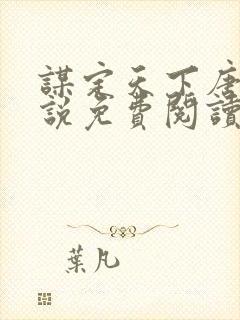 謀定天下唐
說免費閱讀
葉凡